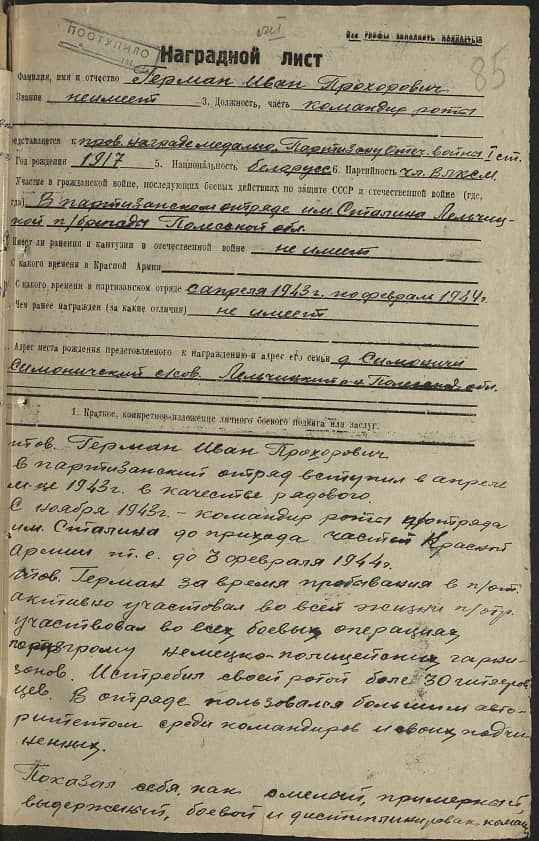 Все графы заполнять полностью
ПОСТУПИЛО
85
Наградной лист
Фамилия, имя и отчество Герман Иван Прохорович
Звание неимеет 3. Должность, часть командир роты
редставляется к прав. награде медалью „Партизану Отеч. война" I ст.
Год рождения 1917 5. Национальность беларусс 6. Партийность чл. ВЛКСМ
Участие в гражданской войне, последующих боевых действиях по защите СССР и отечественной войне (где,
гда) В партизанском отряде им. Сталина Лельчиц-
кой п/бригады Полесской обл.
Имеет ли ранения и контузии в отечественной войне не имеет
С какого времени в Красной Армии
С какого времени в партизанском отряде с апреля 1943 г. по феврал 1944 г.
Чем ранее награжден (за какие отличия) не имеет
Адрес места рождения представляемого к награждению и адрес его семьи д. Симоничи
Симоничский с/сов. Лельчицкий р-н Полесской обл.
1. Краткое, конкретное изложение личного боевого подвига или заслуг.
тов. Герман Иван Прохорович
в партизанский отряд вступил в апреле
м-це 1943 г. в качестве рядового.
С ноября 1943 г. – командир роты п/отряда
им. Сталина до прихода частей Красной
Армии т. е. до 3 февраля 1944 г.
тов. Герман за время пребывания в п/от.
активно участвовал во всей жизни п/отр.
участвовал во всех боевых операциях
по разгрому немецко-полицейских гарни-
зонов. Истребил своей ротой боле 30 гитлеров
цев. В отряде пользовался большим авто-
ритетом среди командиров и своих подчи
ненных.
Показал себя, как смелый, примерный,
выдерженый, боевой и дисциплинирован команд